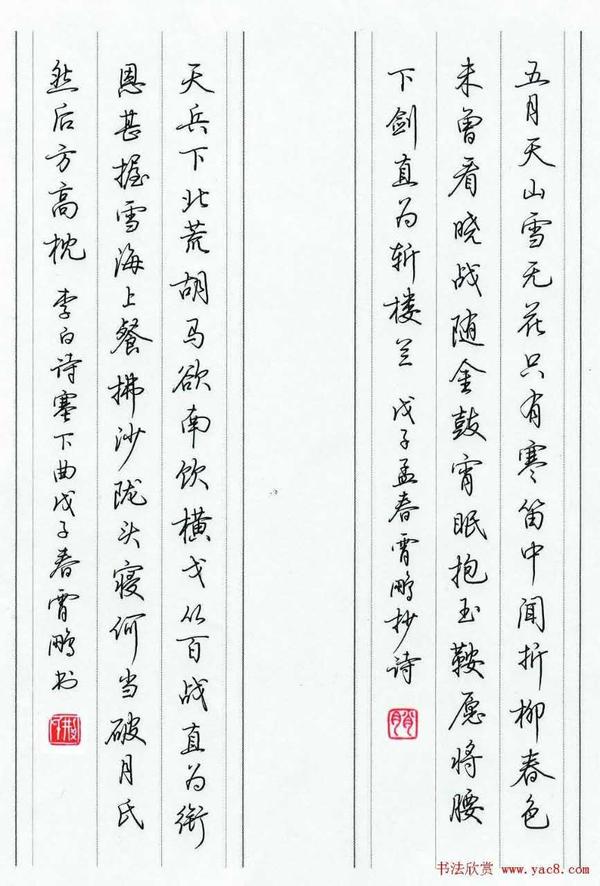 五月天山雪无花只有寒笛中闻折柳春色
未曾看晓战随金鼓宵眠抱玉鞍愿将腰
下剑直为斩楼兰 戊子孟春霄鹏抄诗
天兵下北荒胡马欲南饮横戈从百战直为衔
恩甚握雪海上餐拂沙陇头寝何当破月氏
然后方高枕 李白诗塞下曲戊子春霄鹏书
书法欣赏 www.yac8.com